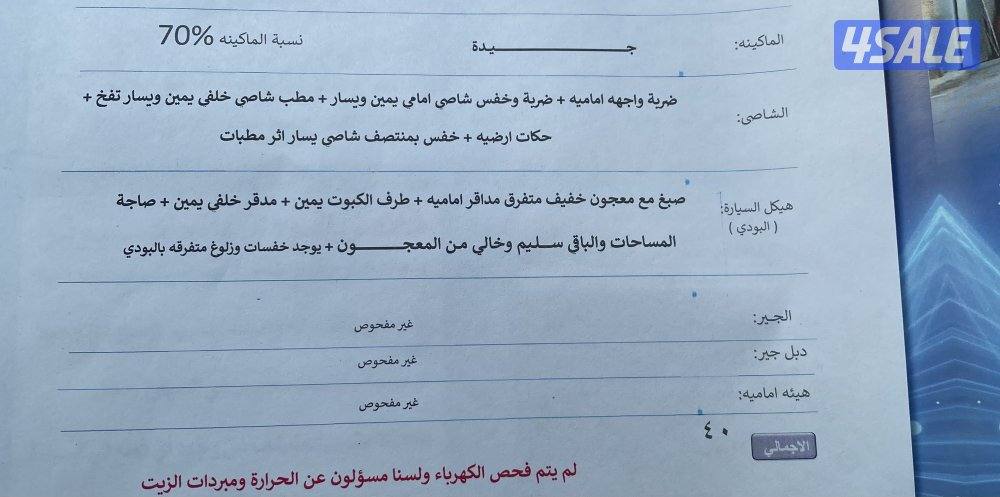 4SALE
الماكينه: جـــيدة نسبة الماكينه 70%
الشاصى: ضربة واجهه اماميه + ضربة وخفس شاصي امامى يمين ويسار + مطب شاصي خلفى يمين ويسار تفخ +
حكات ارضيه + خفس بمنتصف شاصي يسار اثر مطبات
هيكل السيارة: صبغ مع معجون خفيف متفرق مداقر اماميه + طرف الكبوت يمين + مدقر خلفى يمين + صاجة
( البودي ) المساحات والباقي سـليم وخالي من المعجـــون + يوجد خفسات وزلوغ متفرقه بالبودي
الجير: غير مفحوص
دبل جير: غير مفحوص
هيئه اماميه: غير مفحوص
الاجمالي ٤٠
لم يتم فحص الكهرباء ولسنا مسؤلون عن الحرارة ومبردات الزيت